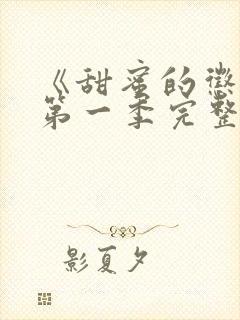 《甜蜜的惩
第一季完整
影夏夕